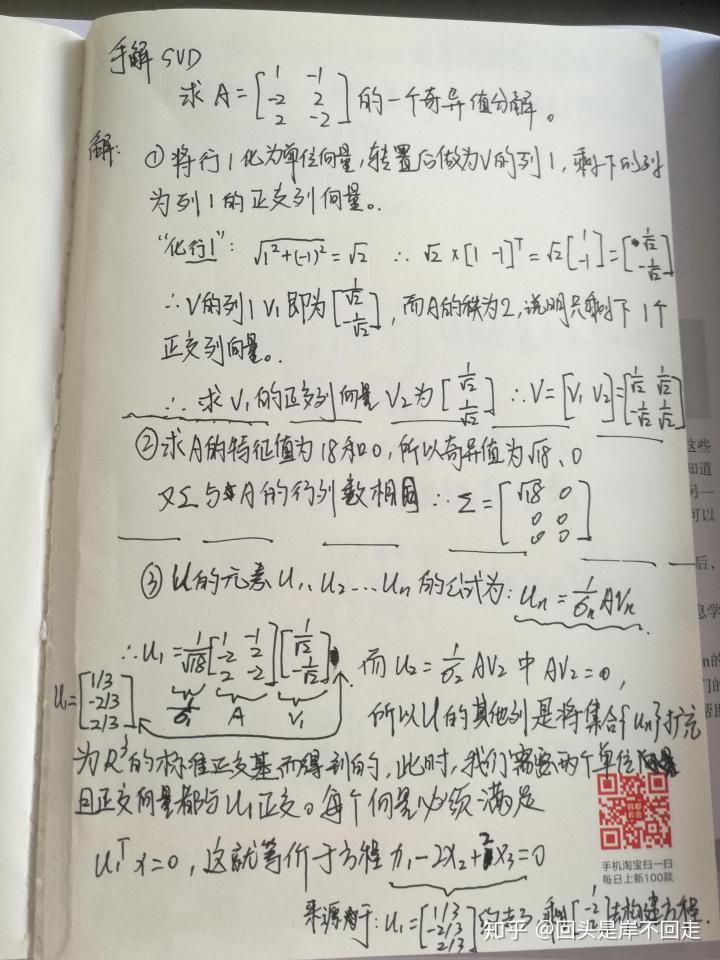 手解 SVD
求 A = [1 -1; -2 2; 2 -2] 的一个奇异值分解。
解: ①将行1化为单位向量,转置后做为V的列1,剩下的列
为列1的正交列向量。
"化行1": √(1²+(-1)²) = √2 ∴ √2 × [1 -1]ᵀ = √2 [1; -1] = [1/√2; -1/√2]
∴V的列1 V₁即为 [1/√2; -1/√2], 而A的秩为2,说明只剩下1个
正交列向量。
∴ 求V₁的正交列向量V₂为 [1/√2; 1/√2] ∴ V = [V₁ V₂] = [1/√2 1/√2; -1/√2 1/√2]
②求A的特征值为18和0,所以奇异值为√18、0
又Σ与A的行列数相同 ∴ Σ = [√18 0; 0 0; 0 0]
③ U的元素 U₁、U₂…Uₙ 的公式为: Uₙ = 1/σₙ AVₙ
∴ U₁ = 1/√18 [1 -1; -2 2; 2 -2] [1/√2; -1/√2] 而 U₂ = 1/σ₂ AV₂ 中 AV₂ = 0,
U₁ = [1/3; -2/3; 2/3] 1/σ₁ A V₁ 所以U的其他列是将集合{uₙ}扩充
为R³的标准正交基而得到的,此时,我们需要两个单位向量
且正交向量都与U₁正交。每个向量必须满足
U₁ᵀx=0, 这就等价于方程 x₁-2x₂+2x₃=0
来源于: U₁ = [1/3; -2/3; 2/3] 约去3 剩 [1; -2; 2] 去构建方程.
手机淘宝扫一扫
每日上新100款
这些
知道
另一
可以
后,
息学
知乎 @回头是岸不回走